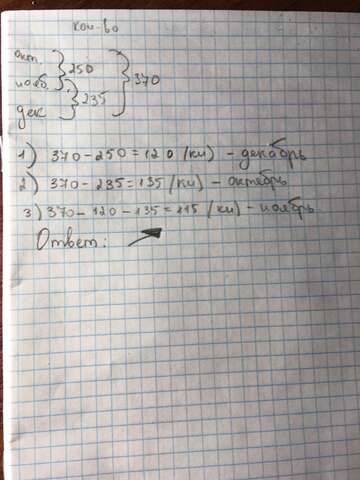 кол-во
окт.
нояб. } 250
дек } 235
} 370
1) 370-250=120 (км) - декабрь
2) 370-235=135 (км) - октябрь
3) 370-120-135=115 (км) - ноябрь
Ответ: